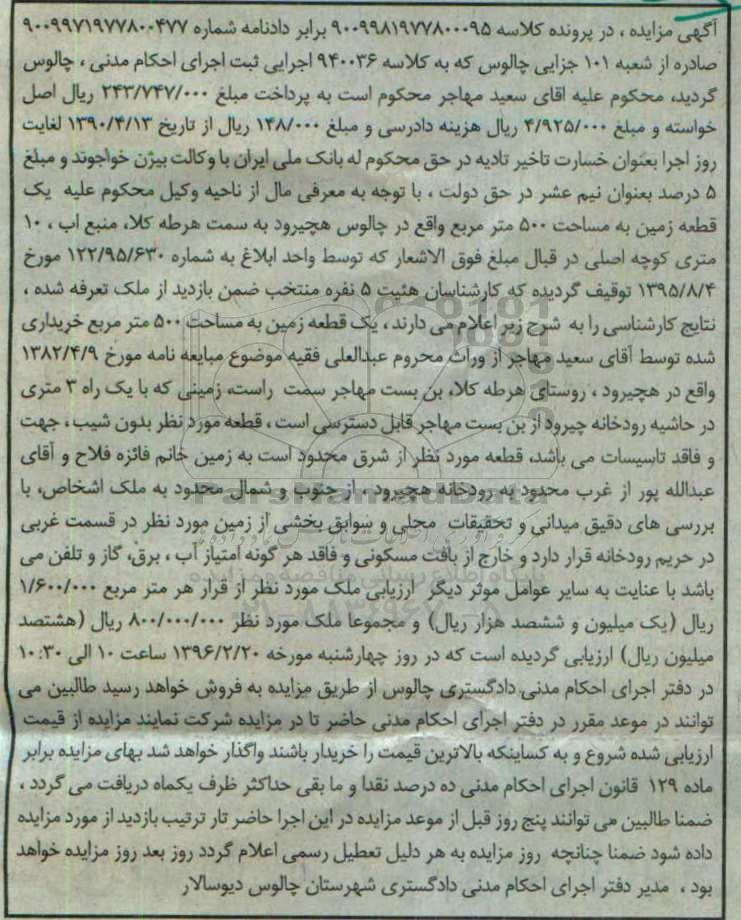 آگهی مزایده ، در پرونده کلاسه ۹۰۰۹۹۸۱۹۷۷۸۰۰۰۹۵ برابر دادنامه شماره ۹۰۰۹۹۷۱۹۷۷۸۰۰۴۷۷
صادره از شعبه ۱۰۱ جزایی چالوس که به کلاسه ۹۴۰۰۳۶ اجرایی ثبت اجرای احکام مدنی ، چالوس
گردید، محکوم علیه اقای سعید مهاجر محکوم است به پرداخت مبلغ ۲۴۳/۷۴۷/۰۰۰ ریال اصل
خواسته و مبلغ ۴/۹۲۵/۰۰۰ ریال هزینه دادرسی و مبلغ ۱۴۸/۰۰۰ ریال از تاریخ ۱۳۹۰/۴/۱۳ لغایت
روز اجرا بعنوان خسارت تاخیر تادیه در حق محکوم له بانک ملی ایران با وکالت بیژن خواجوند و مبلغ
۵ درصد بعنوان نیم عشر در حق دولت ، با توجه به معرفی مال از ناحیه وکیل محکوم علیه یک
قطعه زمین به مساحت ۵۰۰ متر مربع واقع در چالوس هچیرود به سمت هرطه کلا، منبع اب ، ۱۰
متری کوچه اصلی در قبال مبلغ فوق الاشعار که توسط واحد ابلاغ به شماره ۱۲۲/۹۵/۶۳۰ مورخ
۱۳۹۵/۸/۴ توقیف گردیده که کارشناسان هئیت ۵ نفره منتخب ضمن بازدید از ملک تعرفه شده ،
نتایج کارشناسی را به شرح زیر اعلام می دارند ، یک قطعه زمین به مساحت ۵۰۰ متر مربع خریداری
شده توسط آقای سعید مهاجر از وراث محروم عبدالعلی فقیه موضوع مبایعه نامه مورخ ۱۳۸۲/۴/۹
واقع در هچیرود ، روستای هرطه کلا، بن بست مهاجر سمت راست، زمینی که با یک راه ۳ متری
در حاشیه رودخانه چیرود از بن بست مهاجر قابل دسترسی است ، قطعه مورد نظر بدون شیب ، جهت
و فاقد تاسیسات می باشد، قطعه مورد نظر از شرق محدود است به زمین خانم فائزه فلاح و آقای
عبدالله پور از غرب محدود به رودخانه هچیرود ، از جنوب و شمال محدود به ملک اشخاص، با
بررسی های دقیق میدانی و تحقیقات محلی و سوابق بخشی از زمین مورد نظر در قسمت غربی
در حریم رودخانه قرار دارد و خارج از بافت مسکونی و فاقد هر گونه امتیاز آب ، برق، گاز و تلفن می
باشد با عنایت به سایر عوامل موثر دیگر ارزیابی ملک مورد نظر از قرار هر متر مربع ۱/۶۰۰/۰۰۰
ریال (یک میلیون و ششصد هزار ریال) و مجموعا ملک مورد نظر ۸۰۰/۰۰۰/۰۰۰ ریال (هشتصد
میلیون ریال) ارزیابی گردیده است که در روز چهارشنبه مورخه ۱۳۹۶/۲/۲۰ ساعت ۱۰ الی ۱۰:۳۰
در دفتر اجرای احکام مدنی دادگستری چالوس از طریق مزایده به فروش خواهد رسید طالبین می
توانند در موعد مقرر در دفتر اجرای احکام مدنی حاضر تا در مزایده شرکت نمایند مزایده از قیمت
ارزیابی شده شروع و به کساینکه بالاترین قیمت را خریدار باشند واگذار خواهد شد بهای مزایده برابر
ماده ۱۲۹ قانون اجرای احکام مدنی ده درصد نقدا و ما بقی حداکثر ظرف یکماه دریافت می گردد ،
ضمنا طالبین می توانند پنج روز قبل از موعد مزایده در این اجرا حاضر تار ترتیب بازدید از مورد مزایده
داده شود ضمنا چنانچه روز مزایده به هر دلیل تعطیل رسمی اعلام گردد روز بعد روز مزایده خواهد
بود ، مدیر دفتر اجرای احکام مدنی دادگستری شهرستان چالوس دیوسالار